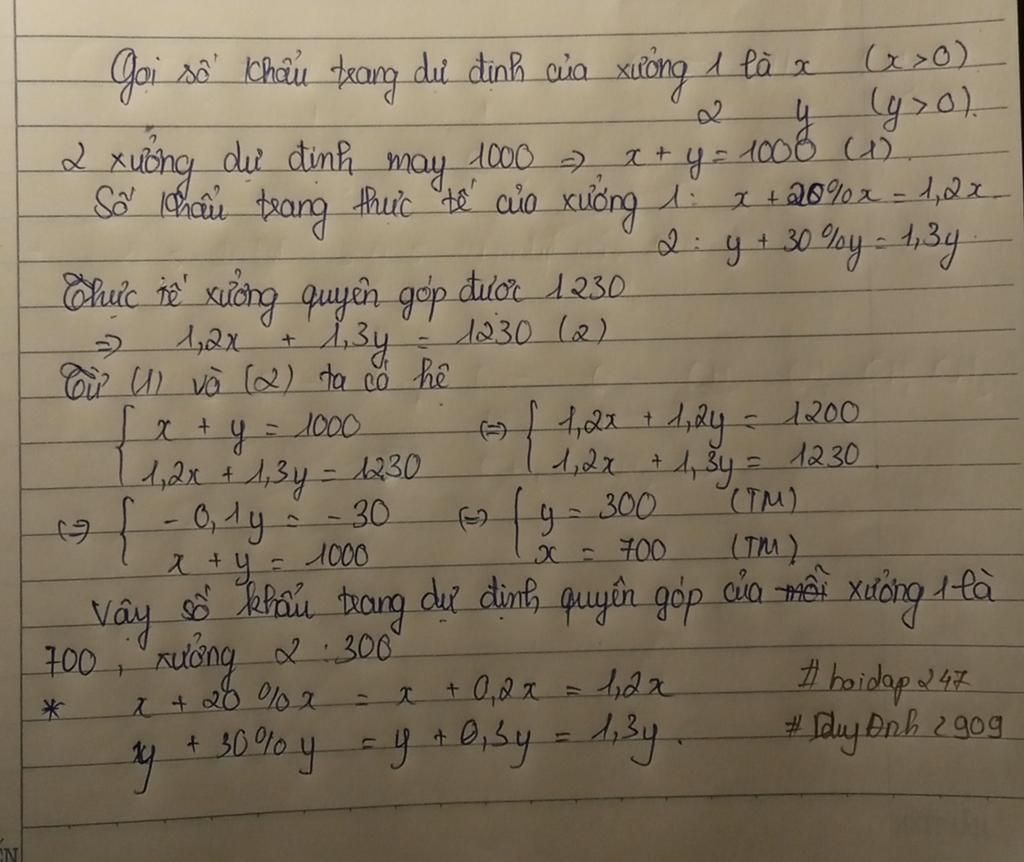 Gọi số khẩu trang dự định của xưởng 1 là x (x>0)
2 y (y>0).
2 xưởng dự định may 1000 => x + y = 1000 (1).
Số khẩu trang thực tế của xưởng 1: x + 20%x = 1,2x.
2: y + 30%y = 1,3y.
Thực tế xưởng quyên góp được 1230
=> 1,2x + 1,3y = 1230 (2)
Từ (1) và (2) ta có hệ
{ x + y = 1000 <=> { 1,2x + 1,2y = 1200
1,2x + 1,3y = 1230 1,2x + 1,3y = 1230.
<=> { -0,1y = -30 <=> { y = 300 (TM)
x + y = 1000 x = 700 (TM)
Vậy số khẩu trang dự định quyên góp của xưởng 1 là
700, xưởng 2: 300
* x + 20%x = x + 0,2x = 1,2x #hoidap247
y + 30%y = y + 0,3y = 1,3y. #DuyĐnh2909